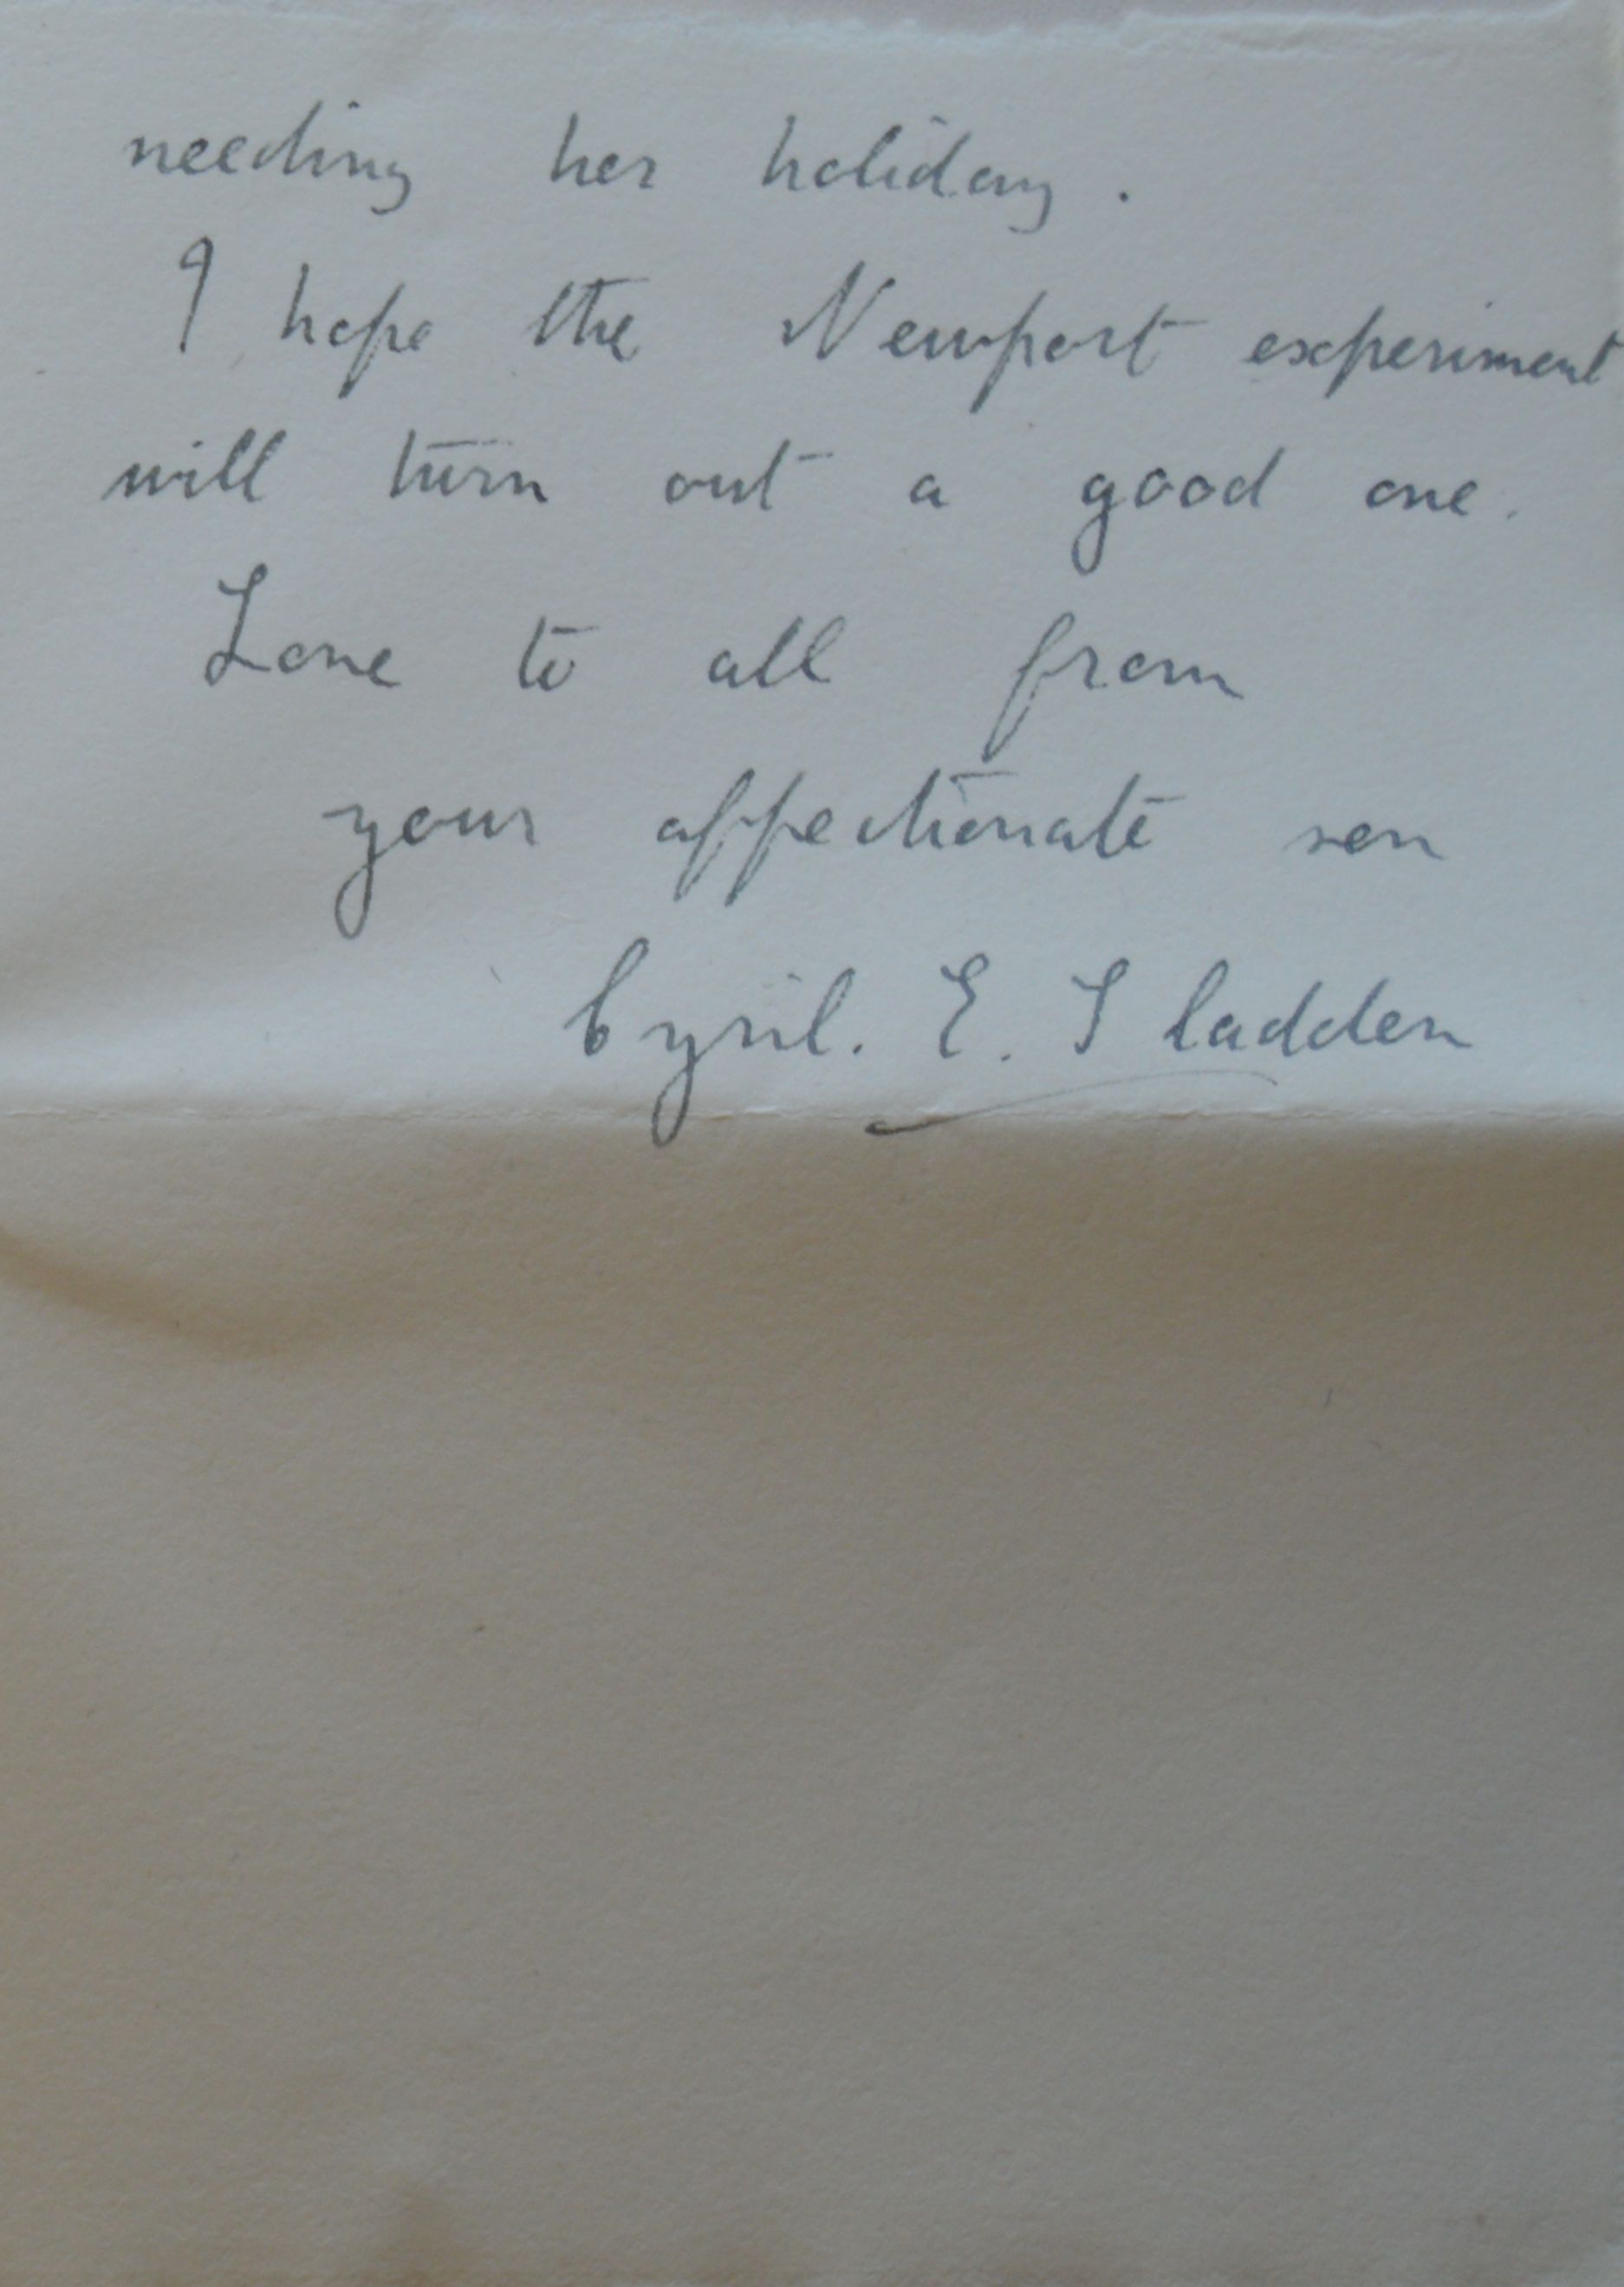 needing her holiday.
I hope the Newport experiment
will turn out a good one.
Love to all from
your affectionate son
Cyril. E. Sladden